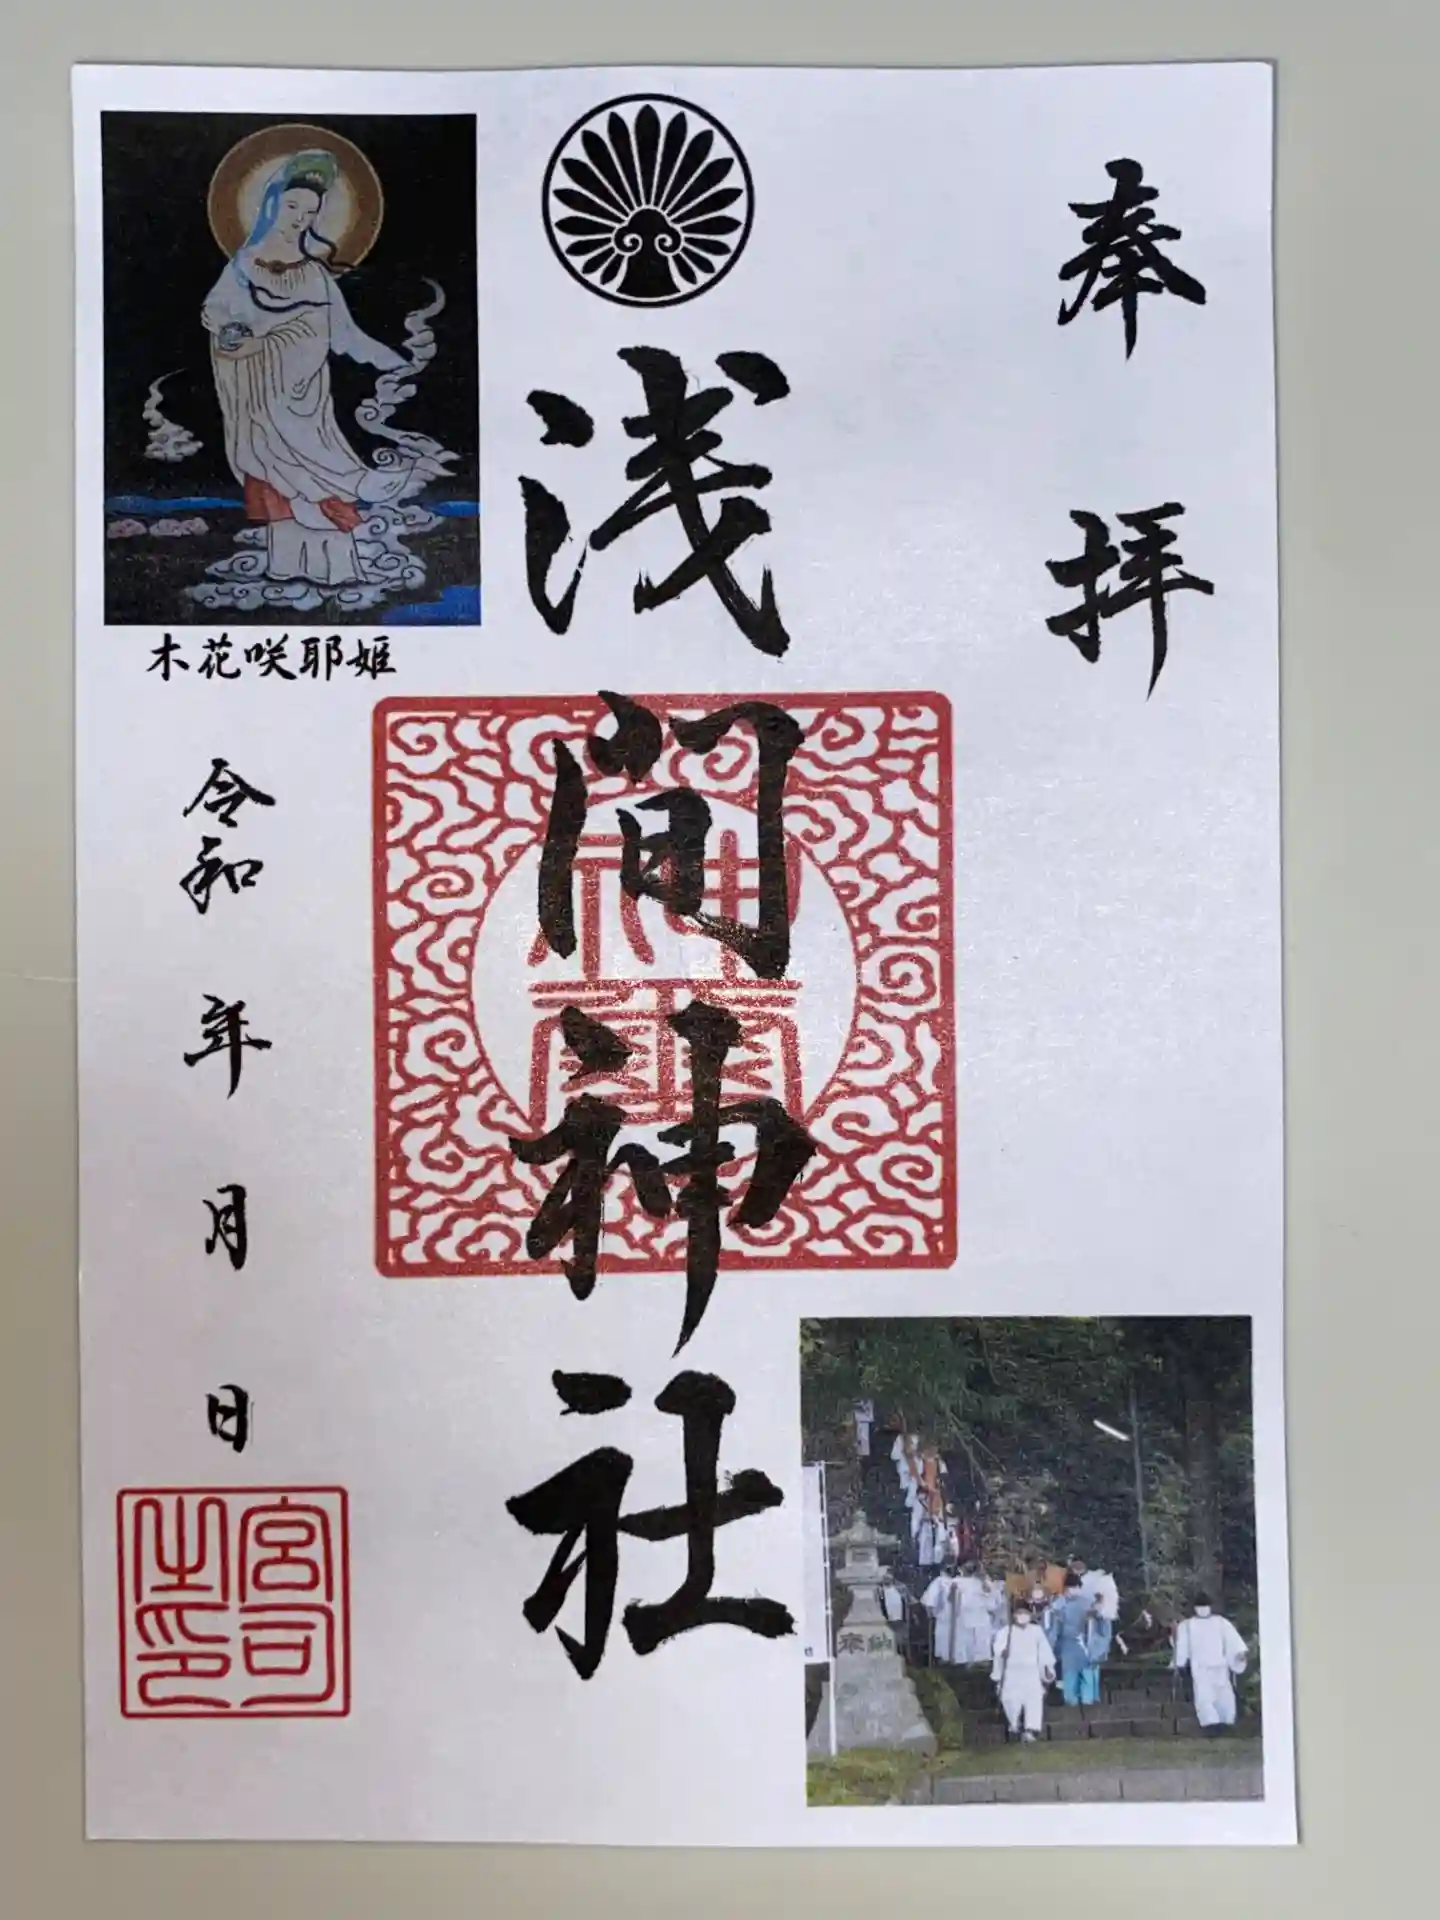 奉拝
浅間神社
木花咲耶姫
令和 年 月 日
宮司之印
奉納